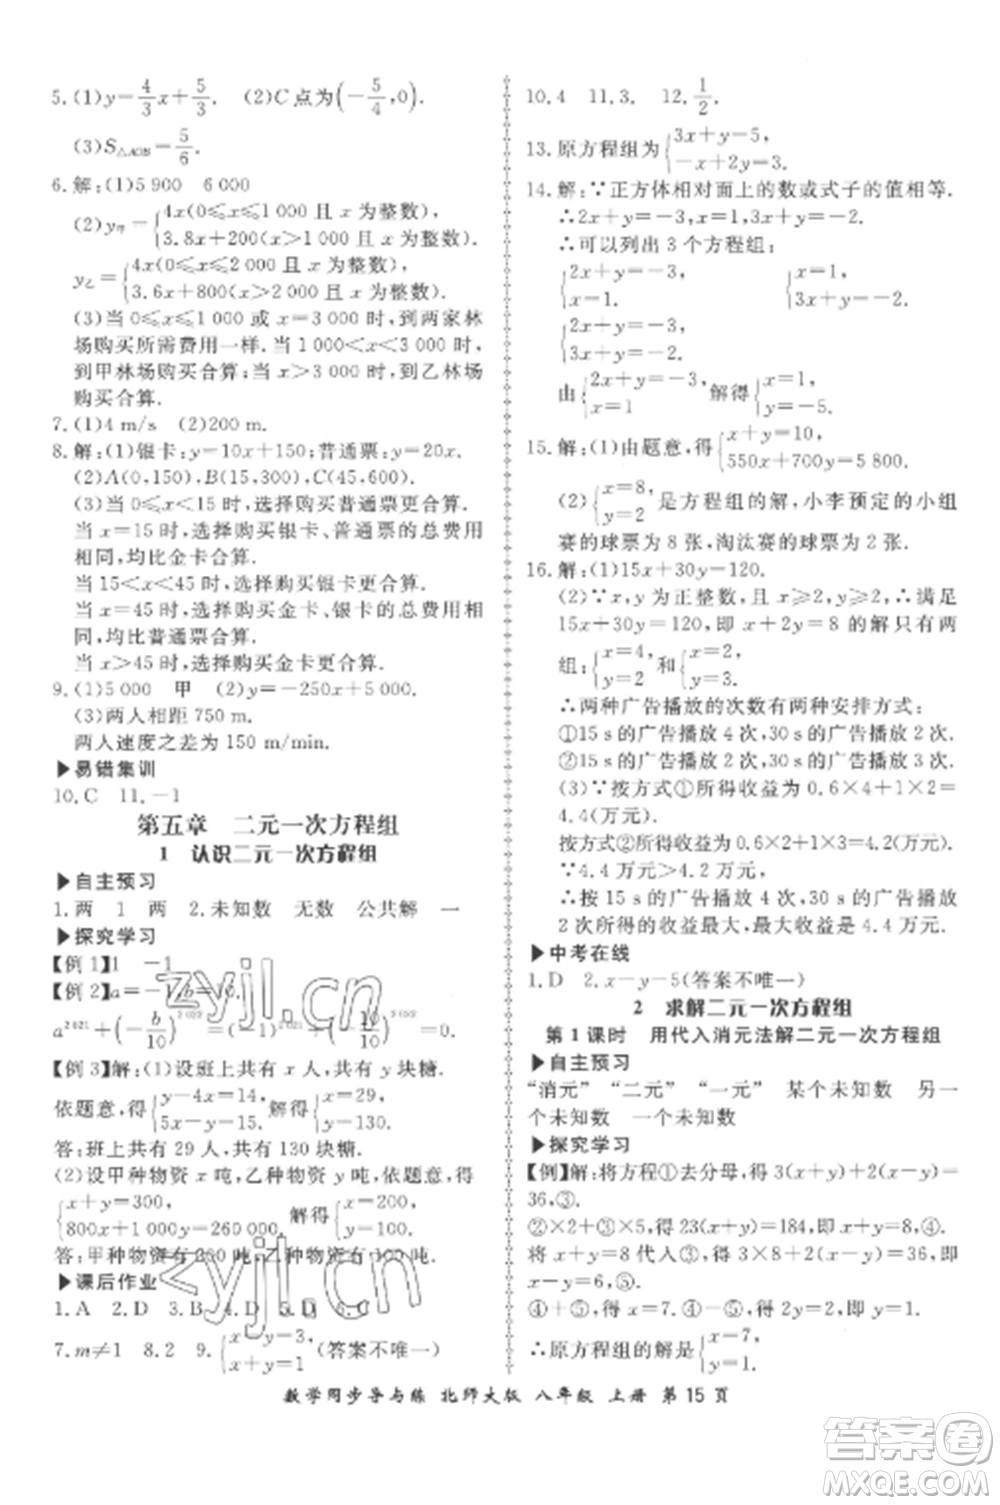 5. (1) y=4/3x+5/3. (2)C点为(-5/4,0).
(3)S△AOB=5/6.
6. 解:(1)5 900 6 000
(2)y甲={4x(0≤x≤1 000 且 x 为整数),
3.8x+200(x>1 000 且 x 为整数).
y乙={4x(0≤x≤2 000 且 x 为整数),
3.6x+800(x>2 000 且 x 为整数).
(3)当 0≤x≤1 000 或 x=3 000 时,到两家林
场购买所需费用一样.当 1 000<x<3 000 时,
到甲林场购买合算;当 x>3 000 时,到乙林场
购买合算.
7. (1)4 m/s (2)200 m.
8. 解:(1)银卡:y=10x+150;普通票:y=20x.
(2)A(0,150),B(15,300),C(45,600).
(3)当 0<x<15 时,选择购买普通票更合算.
当 x=15 时,选择购买银卡、普通票的总费用
相同,均比金卡合算.
当 15<x<45 时,选择购买银卡更合算.
当 x=45 时,选择购买金卡、银卡的总费用相
同,均比普通票合算.
当 x>45 时,选择购买金卡更合算.
9. (1)5 000 甲 (2)y=-250x+5 000.
(3)两人相距 750 m.
两人速度之差为 150 m/min.
▶易错集训
10. C 11. -1
第五章 二元一次方程组
1 认识二元一次方程组
▶自主预习
1. 两 1 两 2. 未知数 无数 公共解 一
▶探究学习
【例 1】1 -1
【例 2】a=-1,b=10.
a^2 021+(-b/10)^2 022=(-1)^2 021+(-10/10)^2 022=0.
【例 3】解:(1)设班上共有 x 人,共有 y 块糖.
依题意,得{y-4x=14, 解得{x=29,
5x-y=15. y=130.
答:班上共有 29 人,共有 130 块糖.
(2)设甲种物资 x 吨,乙种物资 y 吨,依题意,得
{x+y=300, 解得{x=200,
800x+1 000y=260 000. y=100.
答:甲种物资有 200 吨,乙种物资有 100 吨.
▶课后作业
1. A 2. D 3. B 4. D 5. D 6. C
7. m≠1 8. 2 9. {x-y=3, (答案不唯一)
x+y=1
10. 4 11. 3. 12. 1/2.
13. 原方程组为{3x+y=5,
-x+2y=3.
14. 解:∵正方体相对面上的数或式子的值相等.
∴2x+y=-3,x=1,3x+y=-2.
∴可以列出 3 个方程组:
{2x+y=-3, {x=1,
x=1. 3x+y=-2.
{2x+y=-3,
3x+y=-2.
由{2x+y=-3, 解得{x=1,
x=1 y=-5.
15. 解:(1)由题意,得{x+y=10,
550x+700y=5 800.
(2){x=8, 是方程组的解,小李预定的小组
y=2
赛的球票为 8 张,淘汰赛的球票为 2 张.
16. 解:(1)15x+30y=120.
(2)∵x,y 为正整数,且 x≥2,y≥2,∴满足
15x+30y=120,即 x+2y=8 的解只有两
组:{x=4, 和{x=2,
y=2 y=3.
∴两种广告播放的次数有两种安排方式:
①15 s的广告播放 4 次,30 s的广告播放 2 次.
②15 s的广告播放 2 次,30 s的广告播放 3 次.
(3)∵按方式①播放的收益为 0.6×4+1×2=
4.4(万元).
按方式②播放的收益为 0.6×2+1×3=4.2(万元).
∵4.4 万元>4.2 万元,
∴按 15 s 的广告播放 4 次,30 s 的广告播放
2 次所得的收益最大,最大收益是 4.4 万元.
▶中考在线
1. D 2. x-y=5(答案不唯一)
2 求解二元一次方程组
第 1 课时 用代入消元法解二元一次方程组
▶自主预习
“消元” “二元” “一元” 某个未知数 另一
个未知数 一个未知数
▶探究学习
【例】解:将方程①去分母,得 3(x+y)+(x-y)=
36,③.
②×2+③×5,得 23(x+y)=184,即 x+y=8,④.
将 x+y=8 代入③,得 3×8+x-y=36,即
x-y=6,⑤.
④+⑤,得 x=7. ④-⑤,得 2y=2,即 y=1.
∴原方程组的解为{x=7,
y=1.
数学同步导与练 北师大版 八年级 上册 第 15 页
zyjl.cn
zyjl.cn
答案圈
MXQE.COM